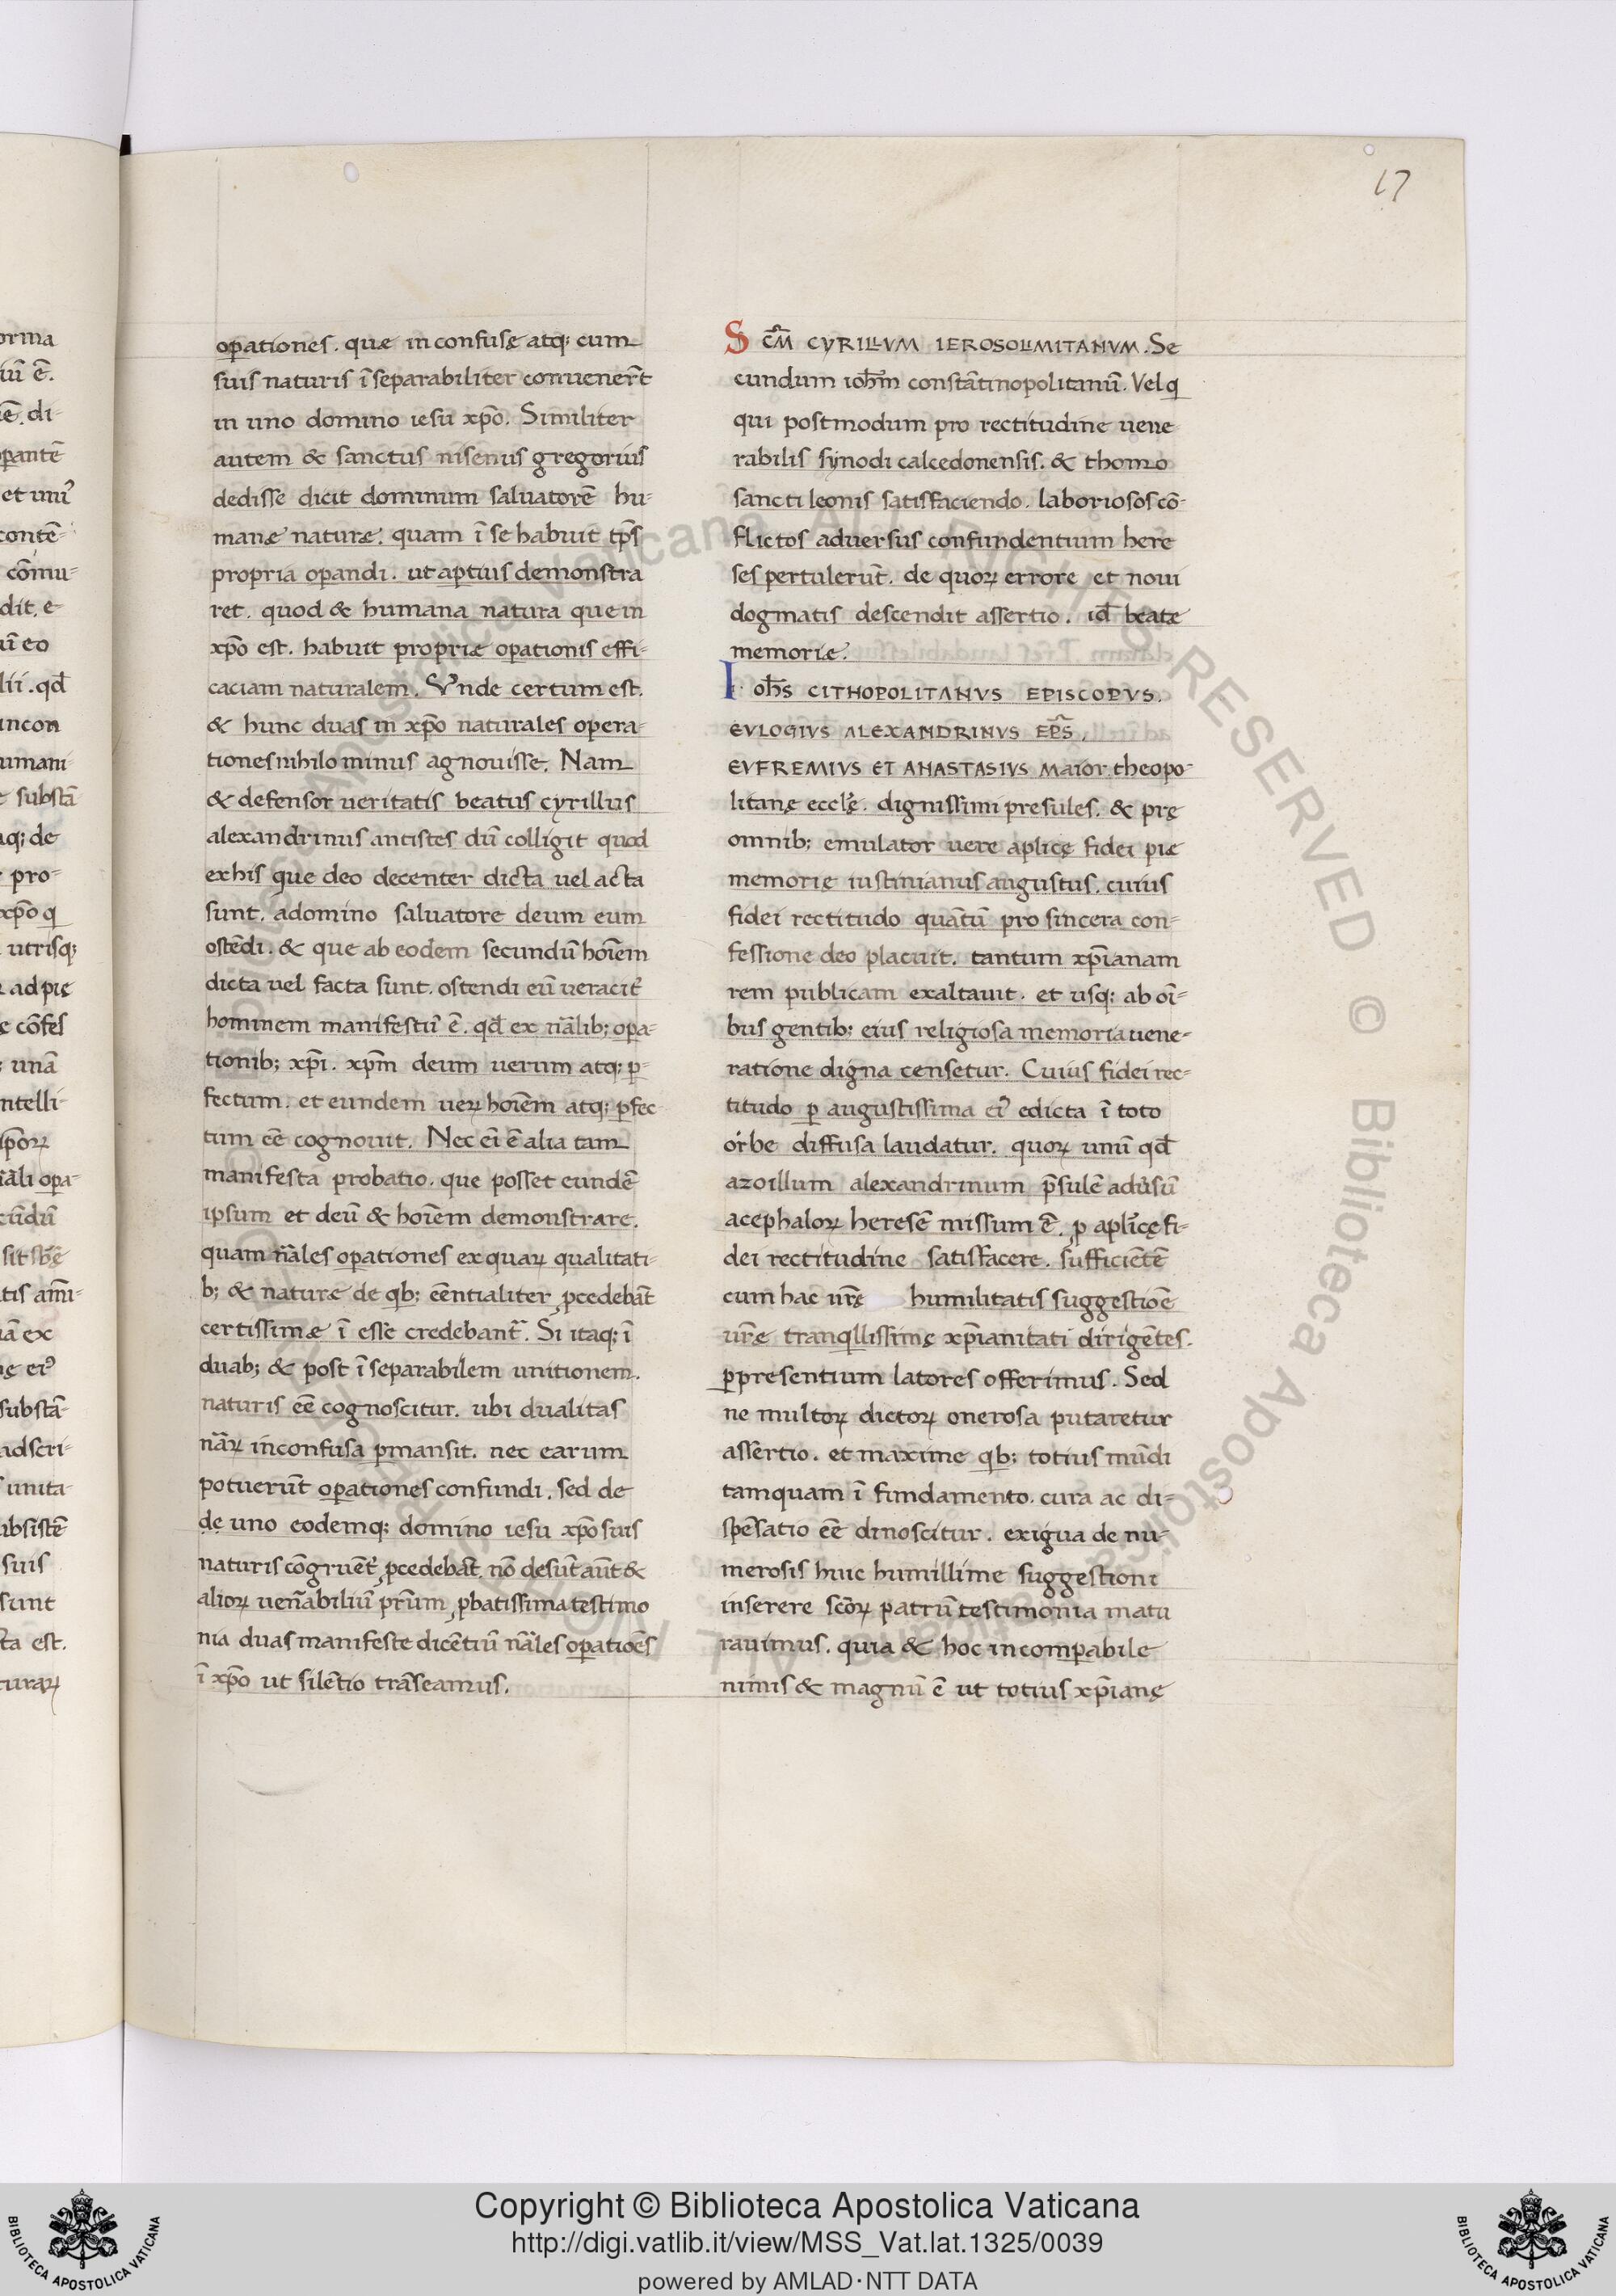 17
orma
iū ē.
iē. di-
oꝑantē
et uniꝰ
contē-
cōmu-
dit. e
uī eo
lii. qđ
incon
umani-
substā
aq; de
pro-
xp̄o q
utrisq;
ad pię
cōfes
unā
ntelli-
ip̄oꝝ
r̄ali oꝑa-
cūdū
sit sb̄ę
tis am̄i-
iā ex
ę eiꝰ
substā-
adscri-
unita-
ubsistē
suis
sunt
ta est.
turaꝝ
oꝑationes. quæ inconfusę atq; cum
suis naturis īseparabiliter conuener̄t
in uno domino iesu xp̄o. Similiter
autem & sanctus nisenus gregorius
dedisse dicit dominum saluatorē hu-
manæ naturæ. quam ī se habuit tp̄s
propria oꝑandi. ut aptius demonstra
ret. quod & humana natura que in
xp̄o est. habuit propriæ oꝑationis effi-
caciam naturalem. Vnde certum est.
& hunc duas in xp̄o naturales opera-
tiones nihilo minus agnouisse. Nam
& defensor ueritatis beatus cyrillus
alexandrinus antistes dū colligit quod
ex his que deo decenter dicta uel acta
sunt. adomino saluatore deum eum
ostēdi. & que ab eodem secundū hoīem
dicta uel facta sunt. ostendi eū ueracit̛
hominem manifestū ē. qđ ex nālib; oꝑa-
tionib; xp̄i. xp̄m deum uerum atq; ꝑ-
fectum. et eundem ueꝝ hoīem atq; ꝑfec-
tum eē cognouit. Nec eī ē alia tam
manifesta probatio. que posset eundē
ipsum et deū & hoīem demonstrare.
quam nāles oꝑationes ex quaꝝ qualitati-
b; & naturæ de qb; eēntialiter ꝓcedebāt
certissimæ ī esse credebant̄. Si itaq; ī
duab; & post īseparabilem unitionem.
naturis eē cognoscitur. ubi dualitas
nāꝝ inconfusa ꝑmansit. nec earum
potuerūt oꝑationes confundi. sed de
de uno eodemq; domino iesu xp̄o suis
naturis cōgruēt̛ ꝓcedebāt. nō desūt aūt &
alioꝝ uen̄abiliū pr̄um ꝓbatissima testimo
nia duas manifeste dicētiū nāles oꝑatiōes
ī xp̄o ut silētio trāseamus.
S c̄m CYRILLVM IEROSOLIMITANVM. Se
cundum ioh̄m constātinopolitanū. Vel q
qui postmodum pro rectitudine uene
rabilis synodi calcedonensis. & thomo
sancti leonis satisfaciendo. laboriosos cō-
flictos aduersus confundentium here
ses pertulerūt. de quoꝝ errore et noui
dogmatis descendit assertio. id̄ beatæ
memoriæ.
I oh̄s CITHOPOLITANVS EPISCOPVS.
EVLOGIVS ALEXANDRINVS EP̄S.
EVFREMIVS ET ANASTASIVS Maior theopo-
litanę eccl̄ę. dignissimi presules. & prę
omnib; emulator uere aplicę fidei piæ
memorię iustinianus augustus. cuius
fidei rectitudo quātū pro sincera con-
fessione deo placuit. tantum xp̄ianam
rem publicam exaltauit. et usq; ab oī-
bus gentib; eius religiosa memoria uene-
ratione digna censetur. Cuius fidei rec-
titudo ꝑ augustissima eiꝰ edicta ī toto
orbe diffusa laudatur. quoꝝ unū qđ
azoillum alexandrinum p̄sulē adưsū
acephaloꝝ heresē missum ē. ꝓ apl̄icę fi-
dei rectitudine satisfacere. sufficiētē
cum hac nr̄ę humilitatis suggestiōe
ur̄ę tranqllissimę xp̄ianitati dirigētes.
ꝑpresentium latores offerimus. Sed
ne multoꝝ dictoꝝ onerosa putaretur
assertio. et maxime qb; totius mūdi
tamquam ī fundamento. cura ac di-
spēsatio eē dinoscitur. exigua de nu-
merosis huic humillime suggestioni
inserere scōꝝ patrū testimonia matu
rauimus. quia & hoc incomparabile
nimis & magnū ē ut totius xp̄ianę
Copyright © Biblioteca Apostolica Vaticana
http://digi.vatlib.it/view/MSS_Vat.lat.1325/0039
powered by AMLAD·NTT DATA
BIBLIOTECA APOSTOLICA VATICANA
BIBLIOTECA APOSTOLICA VATICANA